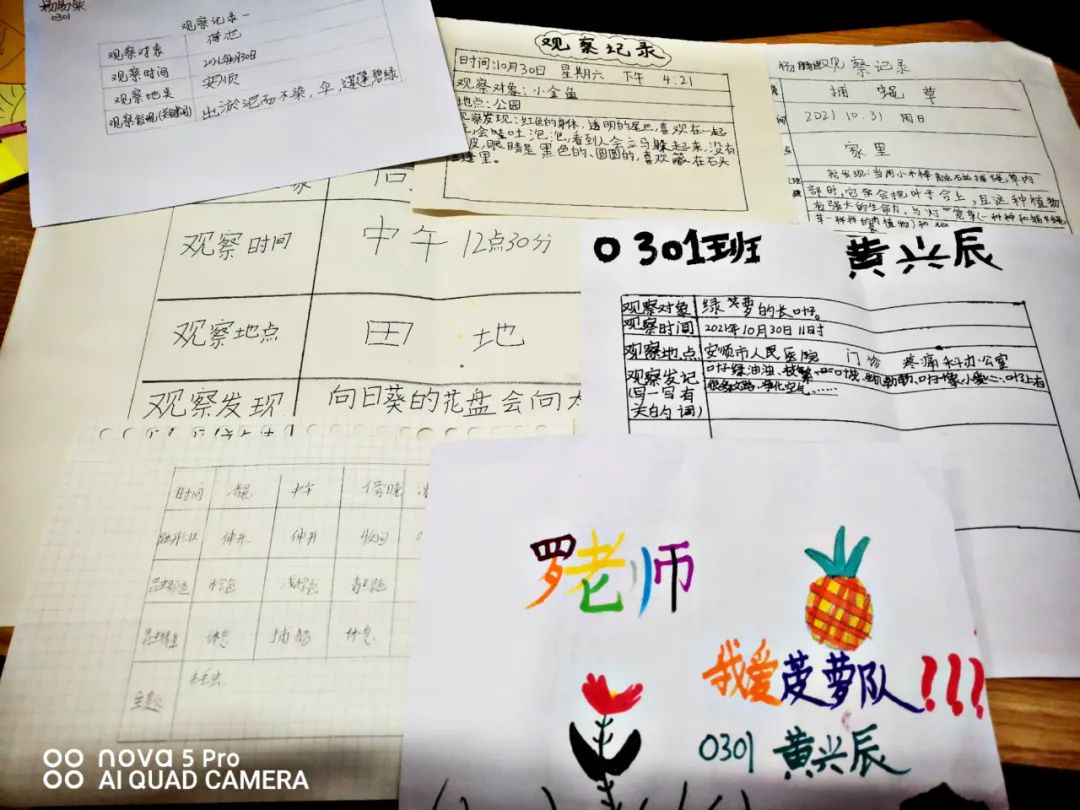 0301
观察记录一
观察对象 荷花
观察时间 2021年10月30日
观察地点 安顺
出淤泥而不染，伞，莲蓬碧绿
观察记录
时间:10月30日 星期六 下午 4:21
观察对象：小金鱼
地点：公园
观察发现：红色的身体，透明的尾巴，喜欢在一起
会吐泡泡，看到人会立马躲起来，没有
皮，眼睛是黑色的、圆圆的，喜欢藏在石头
缝里。
观察记录
捕蝇草
2021.10.31 周日
家里
我发现：当用小木棒
部时，它不会把叶子合上，且这种植物
有强大的生命力，与
观察时间 中午 12点30分
观察地点 田地
观察发现 向日葵的花盘会向
0301班 黄兴辰
观察对象 绿萝的长叶。
观察时间 2021年10月30日 11时
观察地点 安顺市人民医院 门诊 疼痛科办公室
观察发记 叶子绿油油、
(写一写有 很多纹路、净化空气……
关的词)
时间 清晨 中午 傍晚
伸开 伸开 收回
棕色 浅棕色
休息 捕食 休息
主题 毛毛虫
罗老师
我爱菠萝队！！！
0301 黄兴辰
nova 5 Pro
AI QUAD CAMERA